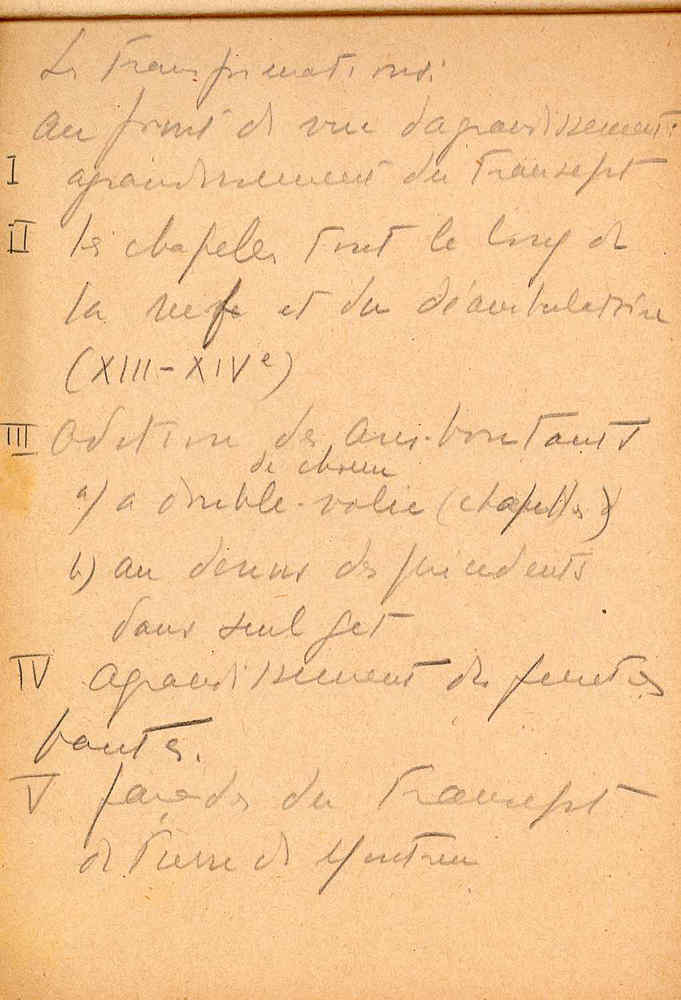 Les Transformations:
au point de vue d'agrandissement:
I agrandissement du Transept
II les chapelles tout le long de
la nefe et du déambulatoire
(XIII-XIVe)
III Adition des arcs-boutants
de chœur
a) a double-volée (chapelles)
b) au dessus des précédents
dans seul jet
IV agrandissement des fenetres
hautes.
V façades du Transept
de Pierre de Montreu